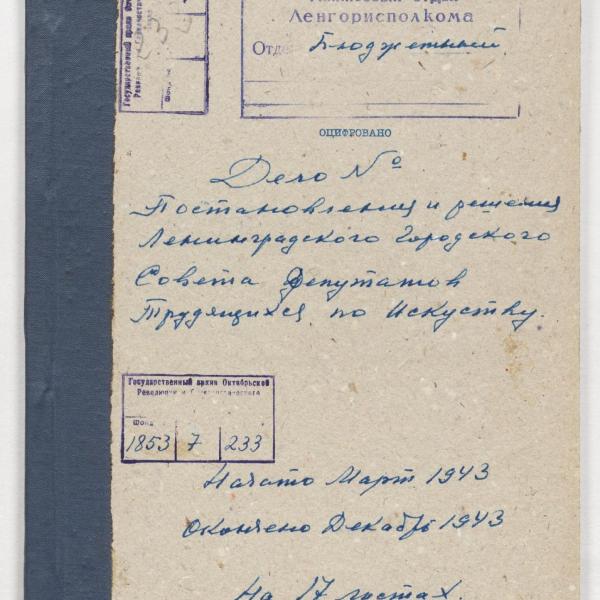 Ленгорисполкома
Отд Бюджетный
ОЦИФРОВАНО
Дело №
Постановления и решения
Ленинградского Городского
Совета Депутатов
Трудящихся по Искуству.
Государственный архив Октябрьской
Революции и
Фонд
1853 7 233
Начато Март 1943
Окончено Декабрь 1943
На 17 листах.